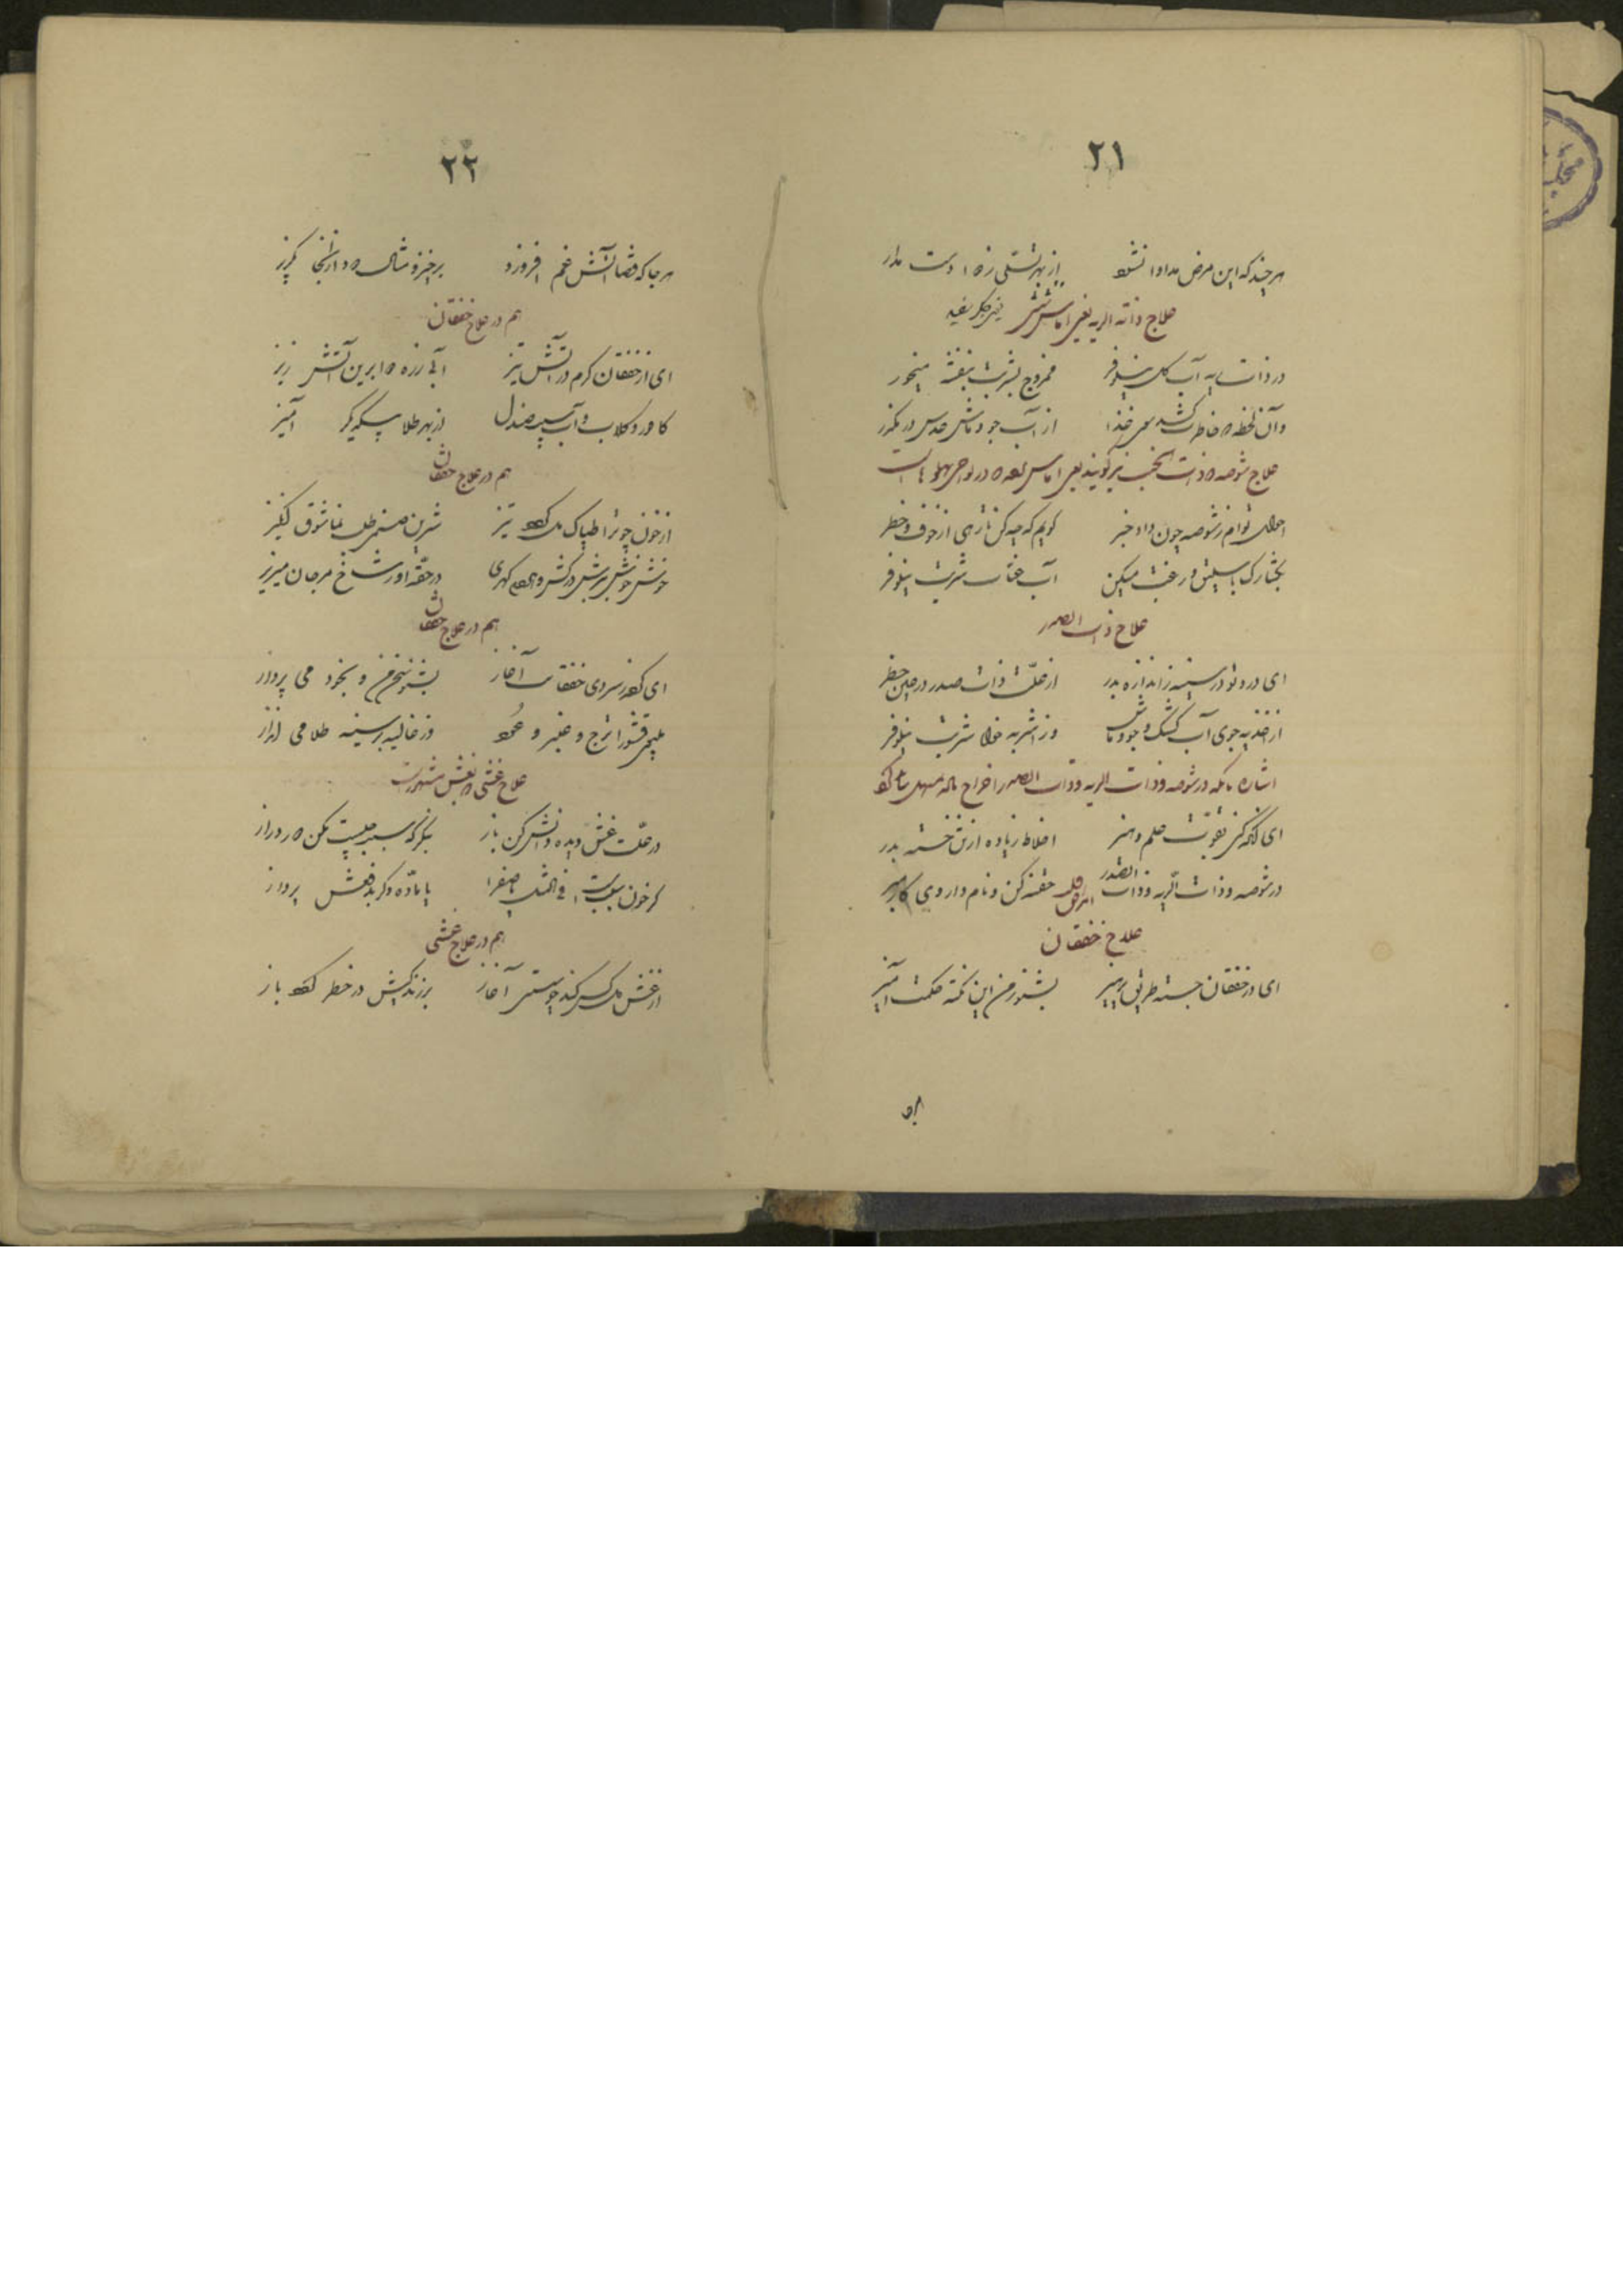 ۲۱
هرچند که این مرض مداوا نشود از بهر تسلی ز دوا دست مدار
علاج ذات الریه یعنی اماس شش یعنی جگر سفید
در ذات ریه آب گل نیلوفر ممزوج بشربت بنفشه میخور
وآن لحظه که خاطرت کشد سوی غذا از آب جو و ماش و عدس در مگذر
علاج شوصه که ذات الجنب نیز گویند یعنی اماس که در نواحی پهلوها است
احوال توام ز شوصه چون داد خبر گویم که چه کن تا رهی از خوف و خطر
بگشا رگ باسلیق و رغبت میکن آب عناب و شربت نیلوفر
علاج ذات الصدر
ای درد تو در سینه ز اندازه بدر از علت ذات صدر در عین خطر
از اغذیه جوی آب کشک و جو و ماش وز اشربه خواه شربت نیلوفر
اشاره بانکه در شوصه و ذات الریه و ذات الصدر اخراج ماده مسهل باید کرد
ای آنکه کنی تقویت علم و هنر اخلاط زیاده از تن خسته ببر
در شوصه و ذات الریه و ذات الصدر حقنه کن و نام داروی کار مبر
علاج خفقان
ای در خفقان جسته طریق پرهیز بشنو ز من این نکته حکمت آمیز
۲۲
هرجا که قضا آتش غم افروزد برخیز و مثال دود از آنجا بگریز
هم در علاج خفقان
ای از خفقان گرم در آتش تیز آبی زره دوا برین آتش ریز
کافور و گلاب و آب سیب و صندل از بهر طلا بیکدیگر آمیز
هم در علاج خفقان
از خون چو ترا طپاک دل گردد تیز شیرین صنمی طلب نما شوق انگیز
خوش خوش در حقه او شاخ مرجان میریز
هم در علاج خفقان
ای کرده ز سردی خفقانت آغاز بشنو سخن من و بخود می پرداز
میخور قشور اترج و عنبر و عود وز غالیه بر سینه طلا می انداز
علاج غشی که بغش مشهور است
در علت غش دیده دانش کن باز بنگر که سبب چیست مکن کار دراز
گر خون سبب است فی المثل یا صفرا یا ماده دگر بدفعش پرداز
هم در علاج غشی
از غش دل کس کند چو سستی آغاز بر زندگیش در خطر گردد باز